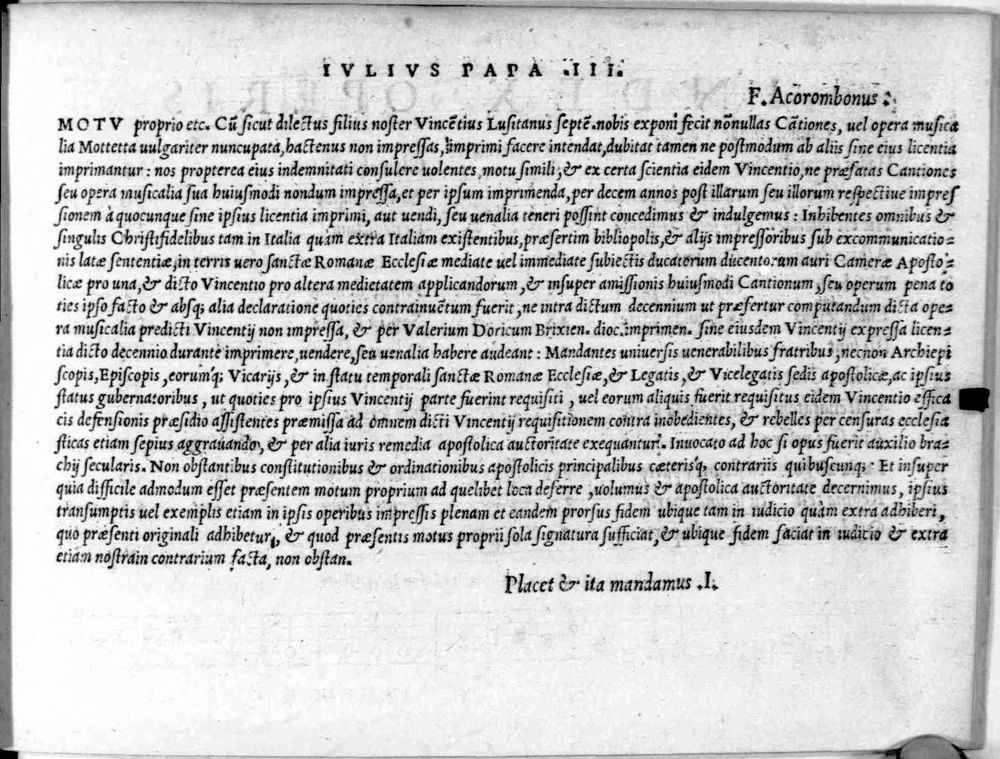 IVLIVS PAPA .III.
F. Acorombonus :.
MOTV proprio etc. Cũ sicut dilectus filius noster Vincẽtius Lusitanus septẽ. nobis exponi fecit nõnullas Cãtiones, uel opera musica
lia Mottetta uulgariter nuncupata, hactenus non impressas, imprimi facere intendat, dubitat tamen ne postmodum ab aliis sine eius licentia
imprimantur : nos propterea eius indemnitati consulere uolentes, motu simili, & ex certa scientia eidem Vincentio, ne præfatas Cantiones
seu opera musicalia sua huiusmodi nondum impressa, et per ipsum imprimenda, per decem annos post illarum seu illorum respectiue impres
sionem à quocunque sine ipsius licentia imprimi, aut uendi, seu uenalia teneri possint concedimus & indulgemus : Inhibentes omnibus &
singulis Christifidelibus tam in Italia quam extra Italiam existentibus, præsertim bibliopolis, & alijs impressoribus sub excommunicatio=
nis latæ sententiæ, in terris uero sanctæ Romanæ Ecclesiæ mediate uel immediate subiectis ducatorum ducentorum auri Cameræ Aposto=
licæ pro una, & dicto Vincentio pro altera medietatem applicandorum, & insuper amissionis huiusmodi Cantionum, seu operum pena to
ties ipso facto & absq; alia declaratione quoties contrainuẽtum fuerit, ne intra dictum decennium ut præfertur computandum dicta ope=
ra musicalia predicti Vincentij non impressa, & per Valerium Doricum Brixien. dioc. imprimen. sine eiusdem Vincentij expressa licen=
tia dicto decennio durante imprimere, uendere, seu uenalia habere audeant : Mandantes uniuersis uenerabilibus fratribus, necnon Archiepi
scopis, Episcopis, eorumq; Vicarijs, & in statu temporali sanctæ Romanæ Ecclesiæ, & Legatis, & Vicelegatis sedis apostolicæ, ac ipsius
status gubernatoribus, ut quoties pro ipsius Vincentij parte fuerint requisiti, uel eorum aliquis fuerit requisitus eidem Vincentio effica
cis defensionis præsidio assistentes præmissa ad omnem dicti Vincentij requisitionem contra inobedientes, & rebelles per censuras ecclesia
sticas etiam sepius aggrauando, & per alia iuris remedia apostolica auctoritate exequantur. Inuocato ad hoc si opus fuerit auxilio bra=
chij secularis. Non obstantibus constitutionibus & ordinationibus apostolicis principalibus cæterisq; contrariis quibuscunq; : Et insuper
quia difficile admodum esset præsentem motum proprium ad quelibet loca deferre, uolumus & apostolica auctoritate decernimus, ipsius
transumptis uel exemplis etiam in ipsis operibus impressis plenam et eandem prorsus fidem ubique tam in iudicio quam extra adhiberi,
quo præsenti originali adhibetur, & quod præsentis motus proprii sola signatura sufficiat, & ubique fidem faciat in iudicio & extra
etiam nostra in contrarium facta, non obstan.
Placet & ita mandamus .I.